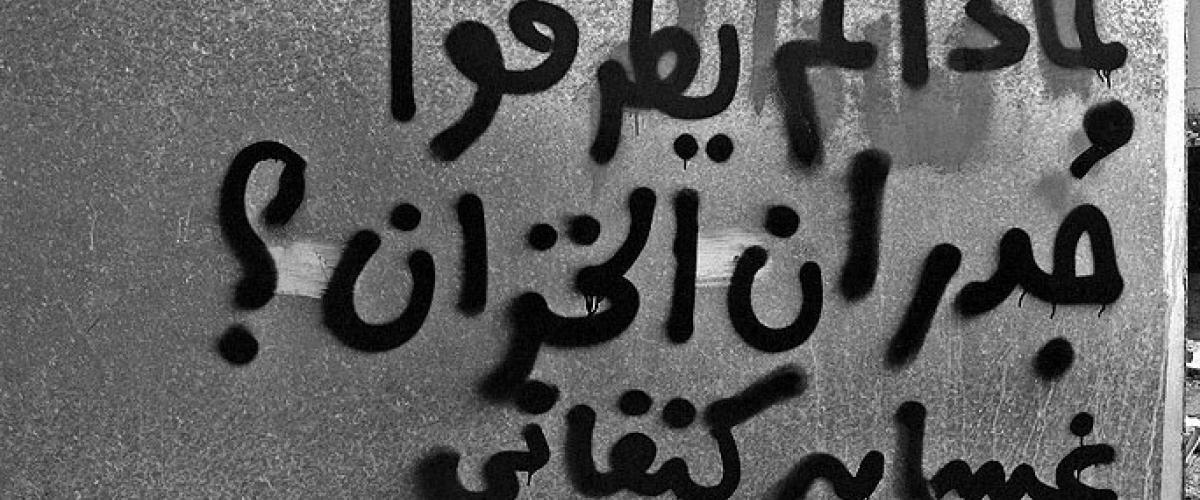 لماذا لم يطرقوا
جُدران الخزان؟
غسان كنفاني